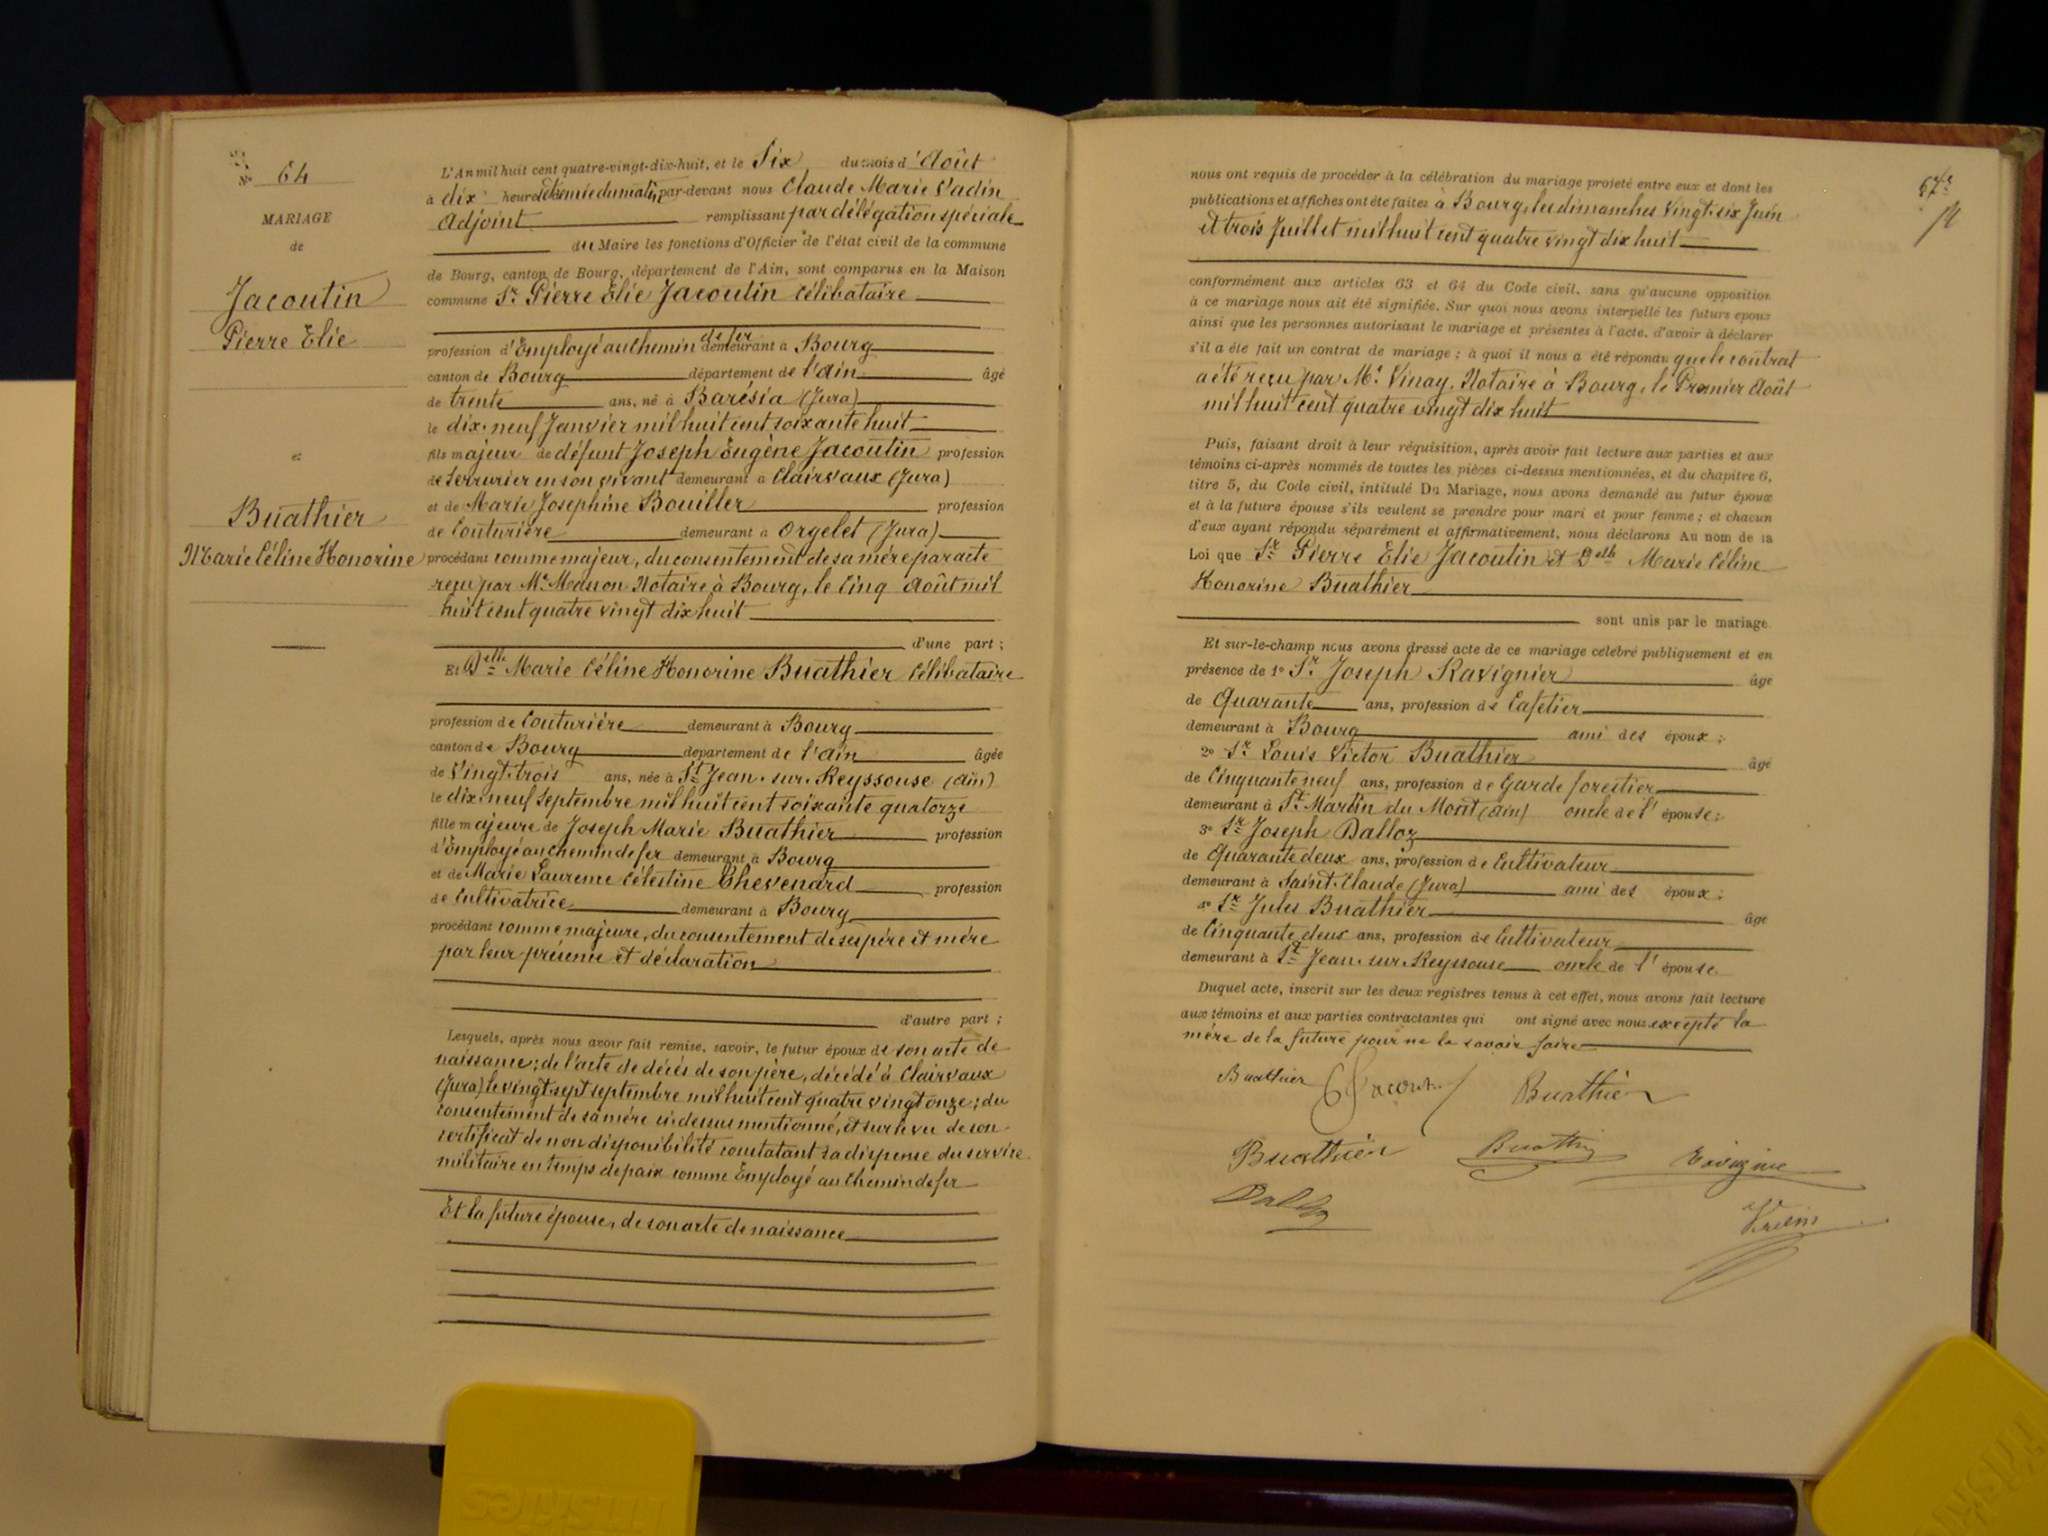 N° 64
MARIAGE
de
Jacoutin
Pierre Elie
et
Buathier
Marie Céline Honorine
L'An mil huit cent quatre-vingt-dix-huit, et le Six du mois d'Août
à dix heures et demie du matin, par-devant nous Claude Marie Vadin
Adjoint remplissant par délégation spéciale
du Maire les fonctions d'Officier de l'état civil de la commune
de Bourg, canton de Bourg, département de l'Ain, sont comparus en la Maison
commune Sr Pierre Elie Jacoutin célibataire
profession d'Employé au chemin de fer demeurant à Bourg
canton de Bourg département de l'Ain âgé
de trente ans, né à Barésia (Jura)
le dix-neuf Janvier mil huit cent soixante huit
fils majeur de défunt Joseph Eugène Jacoutin profession
de Serrurier en son vivant demeurant à Clairvaux (Jura)
et de Marie Josephine Bouiller profession
de Couturière demeurant à Orgelet (Jura)
procédant comme majeur, du consentement de sa mère par acte
reçu par Me Manon Notaire à Bourg, le Cinq Août mil
huit cent quatre vingt dix huit
d'une part ;
Et Delle Marie Céline Honorine Buathier Célibataire
profession de Couturière demeurant à Bourg
canton de Bourg département de l'Ain âgée
de Vingt-trois ans, née à St Jean-sur-Reyssouse (Ain)
le dix-neuf Septembre mil huit cent soixante quatorze
fille majeure de Joseph Marie Buathier profession
d'Employé au chemin de fer demeurant à Bourg
et de Marie Laurence Célestine Chevenard profession
de Cultivatrice demeurant à Bourg
procédant comme majeure, du consentement de ses père et mère
par leur présence et déclaration
d'autre part ;
Lesquels, après nous avoir fait remise, savoir, le futur époux de son acte de
naissance ; de l'acte de décès de son père, décédé à Clairvaux
(Jura) le vingt-sept septembre mil huit cent quatre vingt onze ; du
consentement de sa mère ci-dessus mentionné, et sur le vu de son
certificat de non disponibilité constatant sa dispense du service
militaire en temps de paix comme Employé au Chemin de fer
Et la future épouse, de son acte de naissance
67e
nous ont requis de procéder à la célébration du mariage projeté entre eux et dont les
publications et affiches ont été faites à Bourg, les dimanches Vingt-six Juin
et trois Juillet mil huit cent quatre vingt dix huit
conformément aux articles 63 et 64 du Code civil, sans qu'aucune opposition
à ce mariage nous ait été signifiée. Sur quoi nous avons interpellé les futurs époux
ainsi que les personnes autorisant le mariage et présentes à l'acte, d'avoir à déclarer
s'il a été fait un contrat de mariage ; à quoi il nous a été répondu que le contrat
a été reçu par Me Vinay, Notaire à Bourg, le Premier Août
mil huit cent quatre vingt dix huit
Puis, faisant droit à leur réquisition, après avoir fait lecture aux parties et aux
témoins ci-après nommés de toutes les pièces ci-dessus mentionnées, et du chapitre 6,
titre 5, du Code civil, intitulé Du Mariage, nous avons demandé au futur époux
et à la future épouse s'ils veulent se prendre pour mari et pour femme ; et chacun
d'eux ayant répondu séparément et affirmativement, nous déclarons Au nom de la
Loi que Sr Pierre Elie Jacoutin et Delle Marie Céline
Honorine Buathier
sont unis par le mariage.
Et sur-le-champ nous avons dressé acte de ce mariage célébré publiquement et en
présence de 1° Sr Joseph Ravignier âgé
de Quarante ans, profession de Cafetier
demeurant à Bourg ami des époux ;
2° Sr Louis Victor Buathier âgé
de Cinquante neuf ans, profession de Garde forestier
demeurant à St Martin du Mont (Ain) oncle de l'épouse ;
3° Sr Joseph Dalloz
de Quarante deux ans, profession de Cultivateur
demeurant à Saint-Claude (Jura) ami des époux ;
4° Sr Jules Buathier âgé
de Cinquante deux ans, profession de Cultivateur
demeurant à St Jean-sur-Reyssouse oncle de l'épouse
Duquel acte, inscrit sur les deux registres tenus à cet effet, nous avons fait lecture
aux témoins et aux parties contractantes qui ont signé avec nous excepté la
mère de la future pour ne le savoir faire
Buathier Buathier
Buathier Buathier